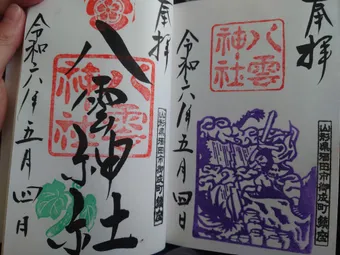 奉拝
山形県酒田市御成町鎮座
八雲
神社
令和六年五月四日
奉拝
山形県酒田市御成町鎮座
八雲神社
八雲
神社
令和六年五月四日